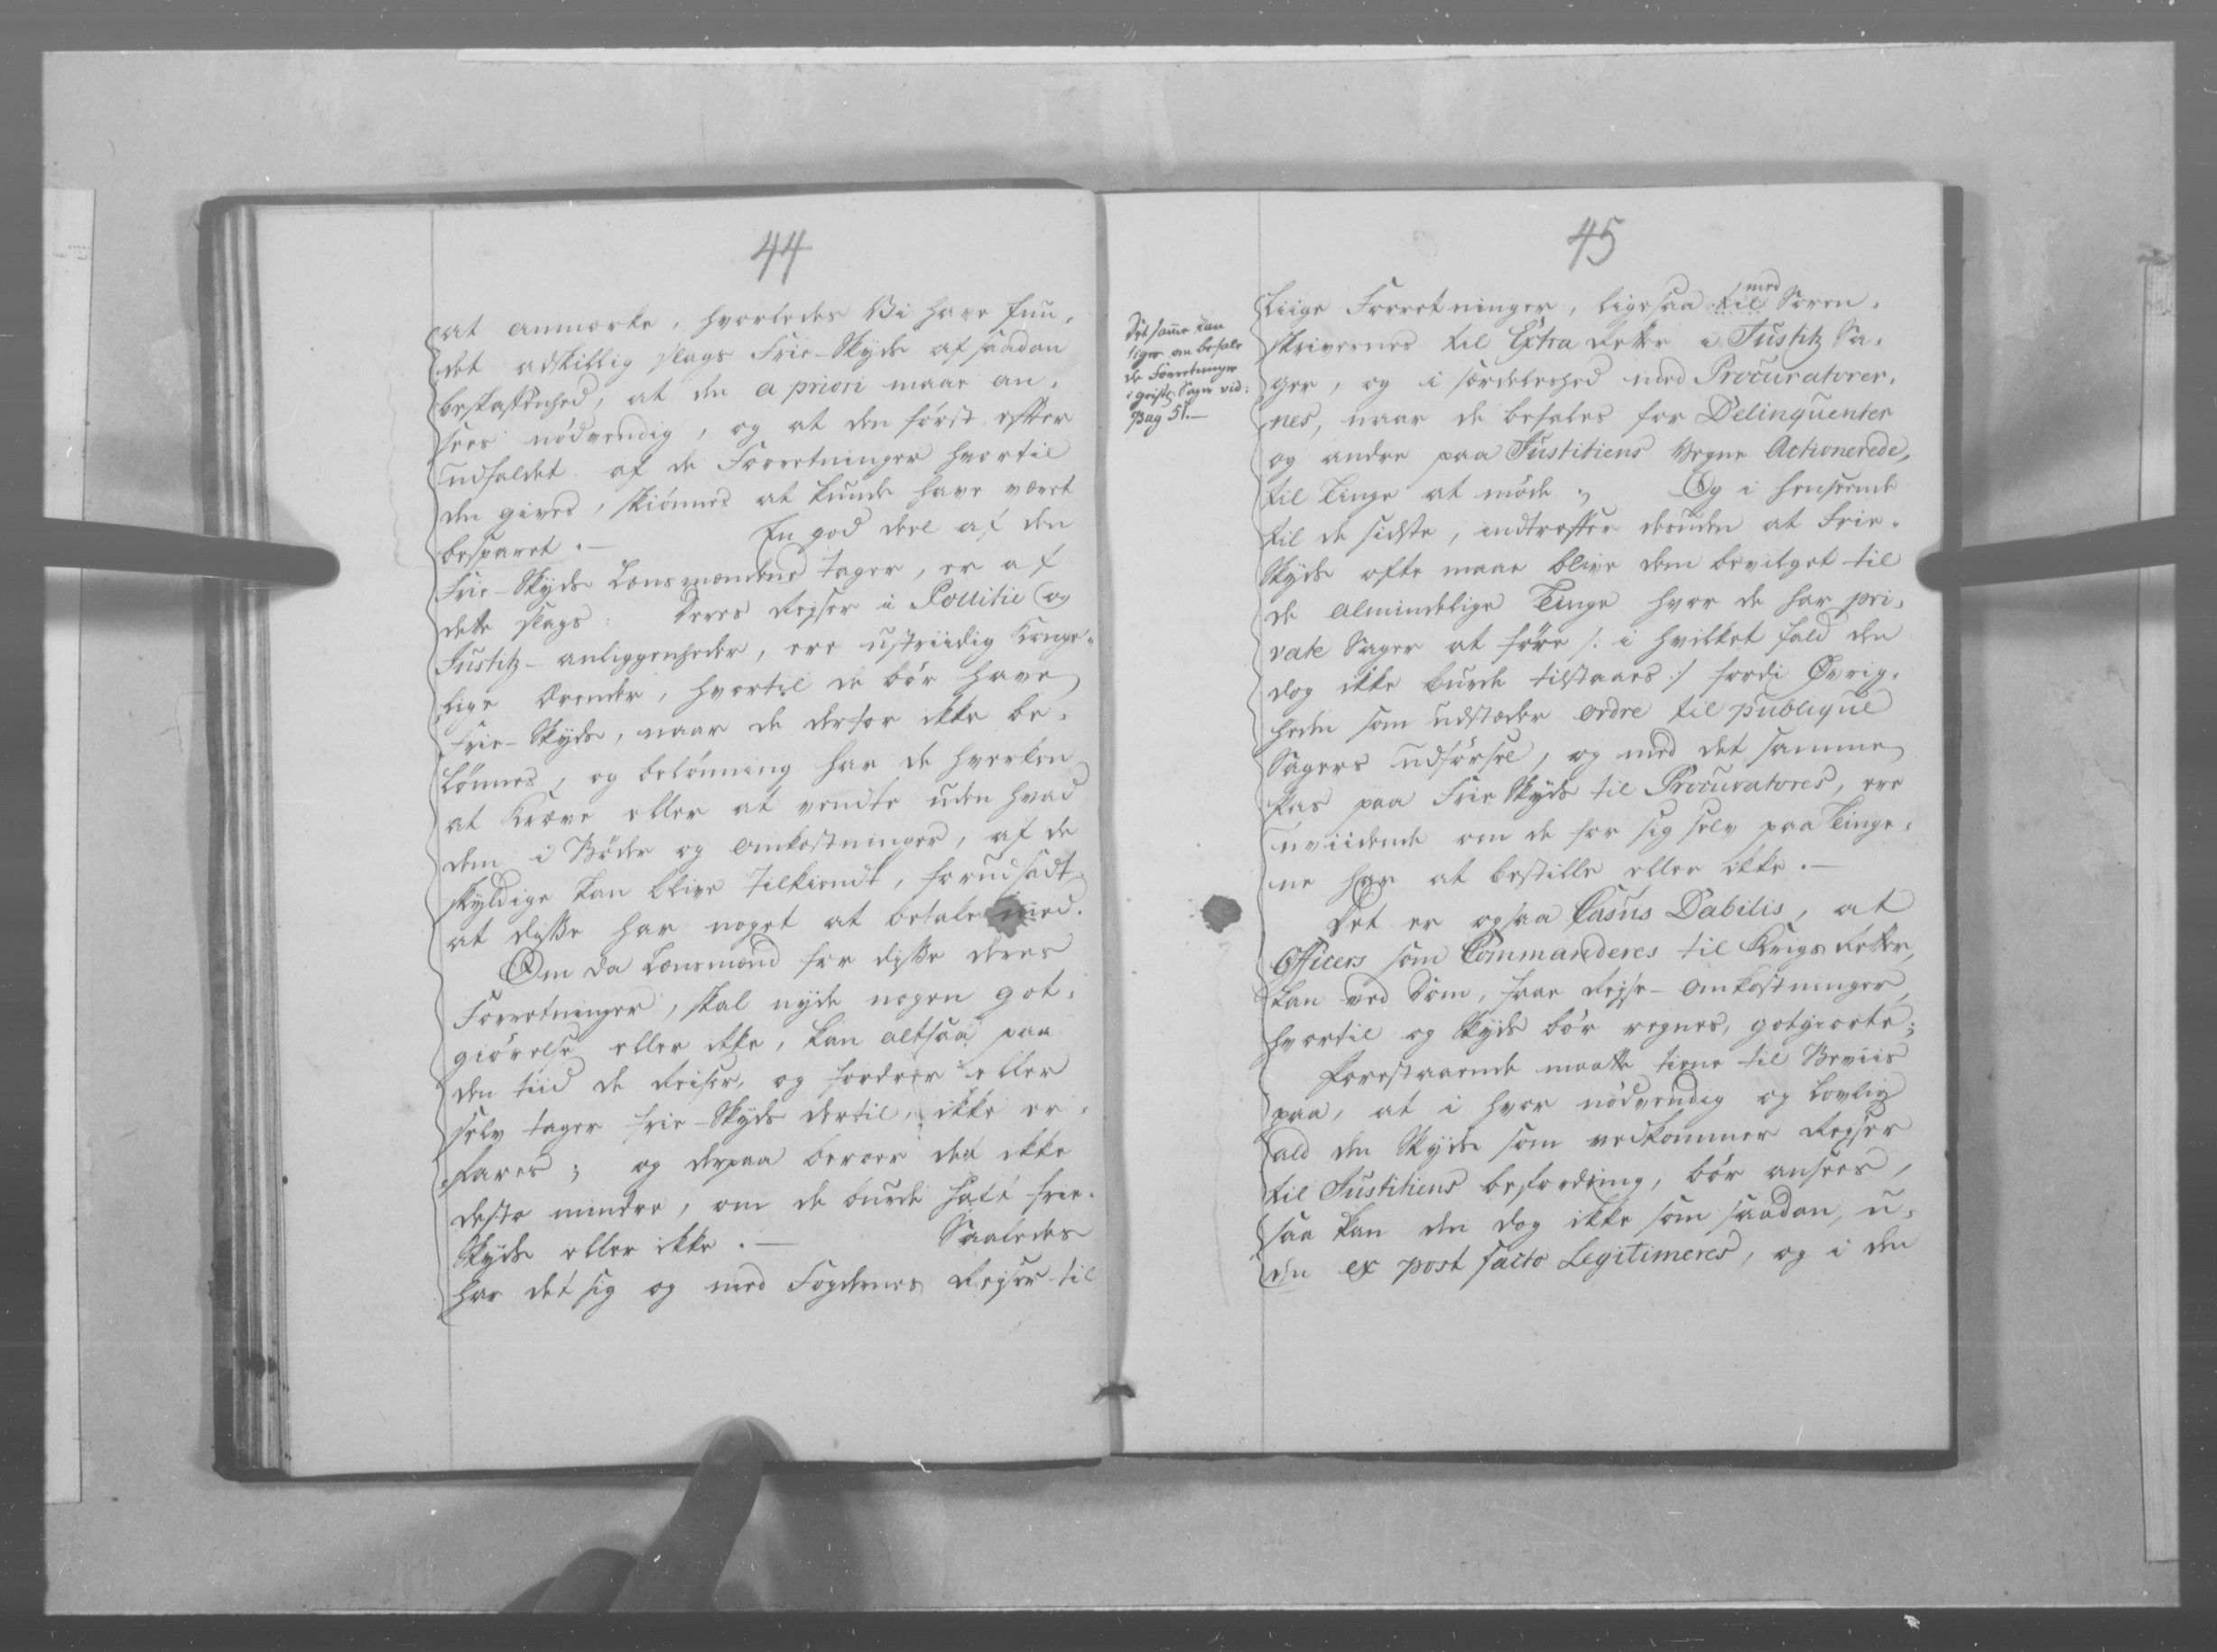 44
at anmærke, hvorledes Vi have fun-
det adskillig slags Frie-Skyds af saadan
beskaffenhed, at den a priori maae an-
sees nödvendig, og at den först efter
udfaldet af de Forretninger hvortil
den gives, skiönnes at kunde have været
besparet.— En god deel af den
Frie-Skyds Lensmændene tager, er af
dette slags: Deres Rejser i Pollitie og
Justitz-anliggenheder, ere ustriidig Konge-
lige Ærender, hvortil de bör have
frie-Skyds, naar de derfor ikke be-
lönnes, og belönning har de hverken
at kræve eller at vendte uden hvad
dem i Böder og omkostninger, af de
skyldige kan blive Tilkiendt, forudsadt
at disse har noget at betale med.
Om da Lensmænd for disse deres
Forretninger, skal nyde nogen got-
giörelse eller ikke, kan altsaa paa
den tiid de Reiser, og fordrer eller
selv tager frie-Skyds dertil, ikke er-
fares; og derpaa beroer det ikke
desto mindre, om de burde haft frie-
Skyds eller ikke.— Saaledes
har det sig og med Fogdernes Rejser til
45
Det samme kan
siges om befale
de Forretninger
i geistl: Sager vid:
Pag 51.—
Liige Forretninger, ligesaa til med Soren-
skrivernes til Extra Rette i Justitz Sa-
ger, og i særdeleshed med Procuratorer-
nes, naar de befales for Delinquenter
og andre paa Justitiens Vegne Actionerede,
til Tinge at möde; Og i henseende
til de sidste, indtreffer desuden at Frie-
Skyds ofte maae blive dem bevilget til
de almindelige Tinge hvor de har pri-
vate Sager at före /: i hvilket fald den
dog ikke burde tilstaaes :/ fordi Øvrig-
heden som udstæder ordre til publique
Sagers udförsel, og med det samme
Pas paa Frie Skyds til Procuratores, ere
uviidende om de for sig selv paa Tinge-
ne har at bestille eller ikke.—
Det er ogsaa Casus Dabilis, at
Officers som Commanderes til Krigs Retter,
kan ved Dom, faae Rejse-omkostninger,
hvortil og Skyds bör regnes, gotgiorte;
Forestaaende maatte tiene til Beviis
paa, at i hvor nödvendig og lovlig
ald den Skyds som vedkommer Rejser
til Justitiens befordring, bör ansees,
saa kan den dog ikke som saadan, u-
den ex post facto Legitimeres, og i den